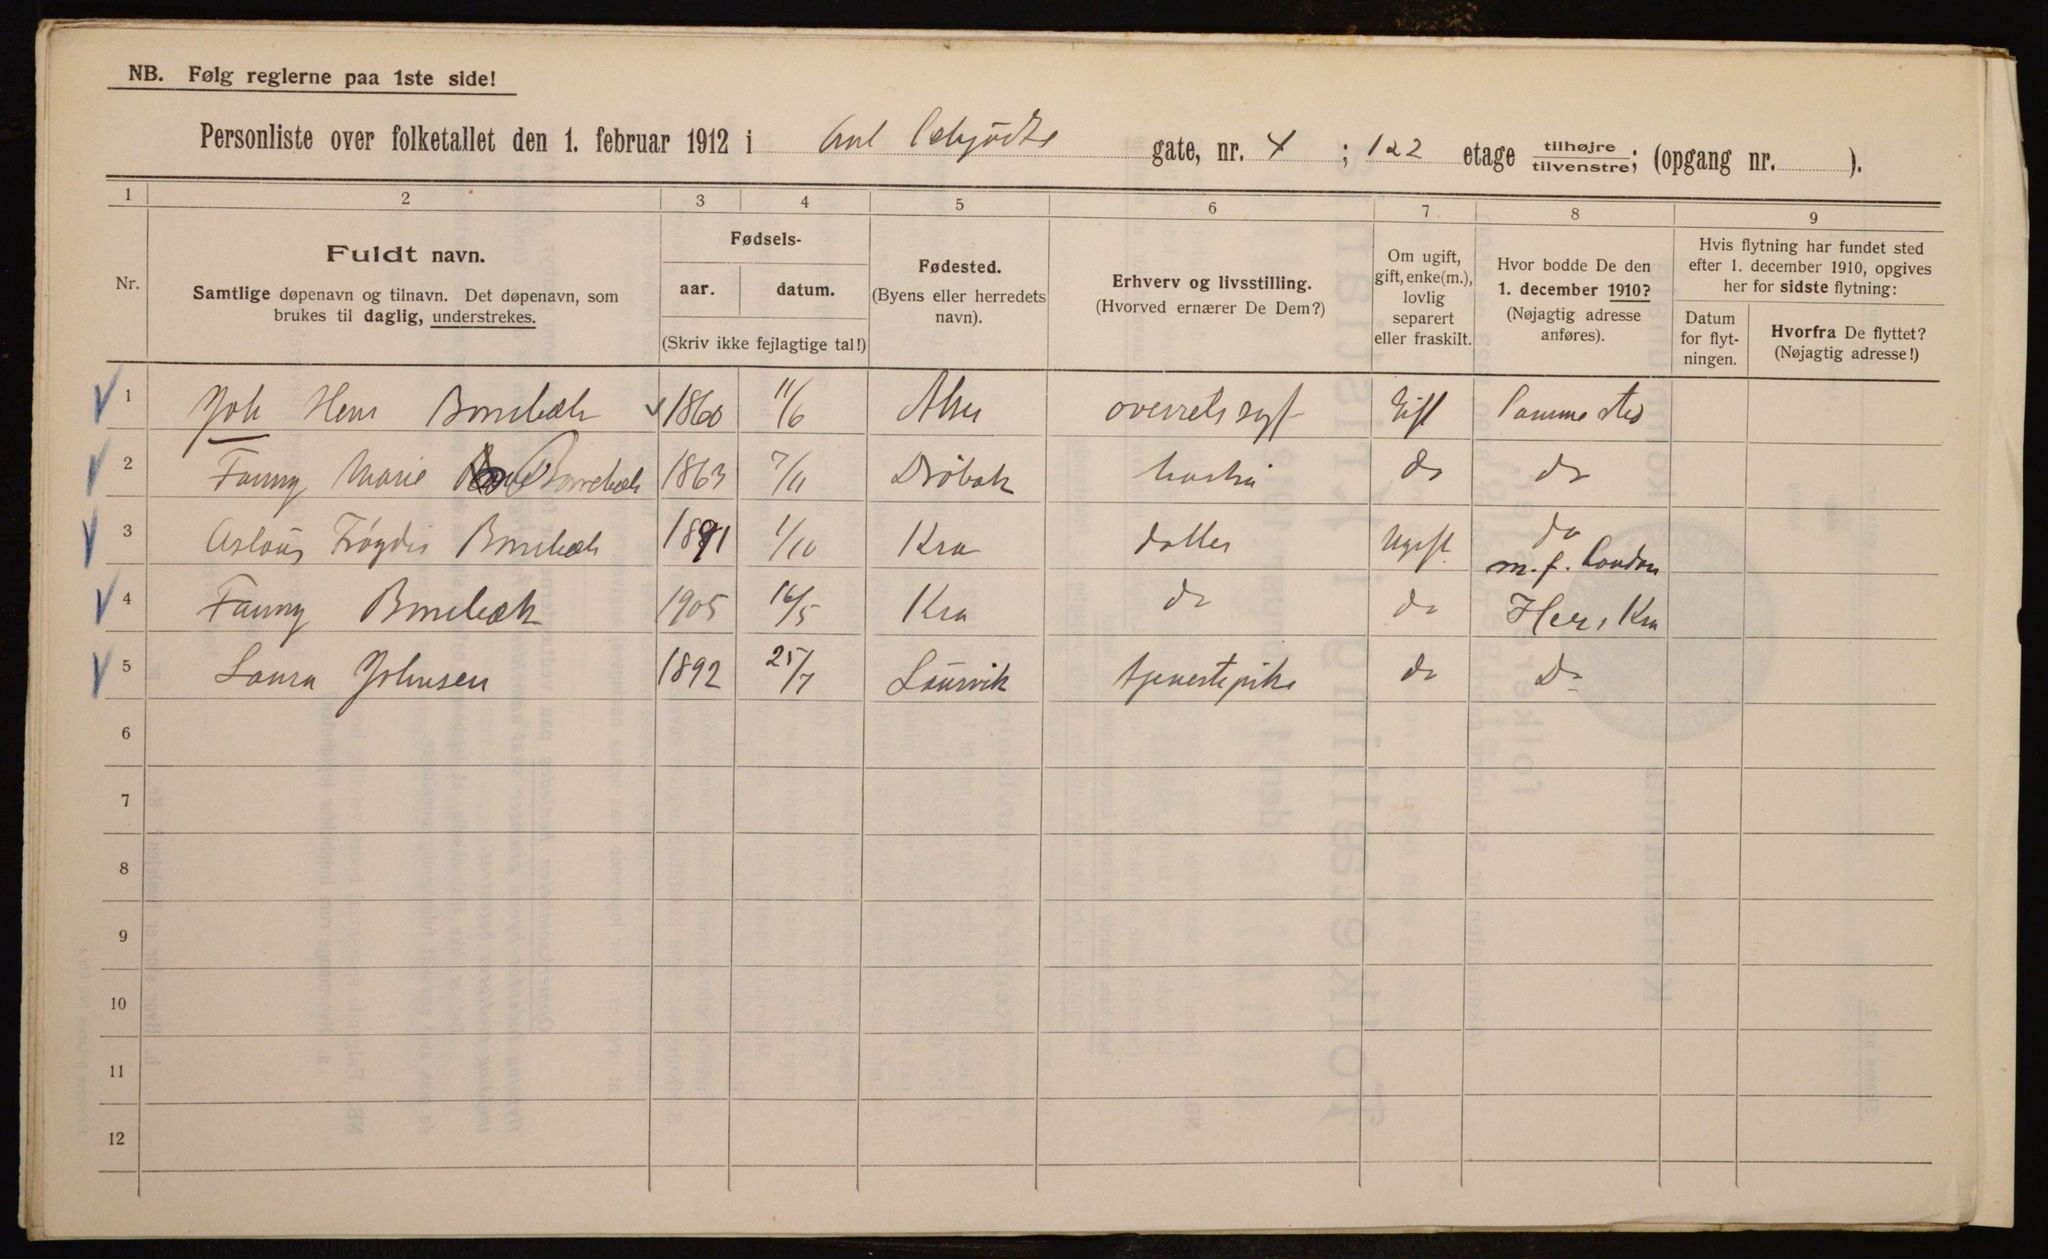 NB. Følg reglerne paa 1ste side!
Personliste over folketallet den 1. februar 1912 i gate, nr. 4 ; 1 2 2 etage tilhøjre tilvenstre; (opgang nr. ).
1 2 3 4 5 6 7 8 9
Nr.
Fuldt navn.
Samtlige døpenavn og tilnavn. Det døpenavn, som
brukes til daglig, understrekes.
Fødsels-
aar. datum.
(Skriv ikke fejlagtige tal!)
Fødested.
(Byens eller herredets
navn).
Erhverv og livsstilling.
(Hvorved ernærer De Dem?)
Om ugift,
gift, enke(m.),
lovlig
separert
eller fraskilt.
Hvor bodde De den
1. december 1910?
(Nøjagtig adresse
anføres).
Hvis flytning har fundet sted
efter 1. december 1910, opgives
her for sidste flytning:
Datum
for flyt-
ningen.
Hvorfra De flyttet?
(Nøjagtig adresse!)
1 Joh 1860 11/6 Gift Samme sted
2 Fanny Marie 1863 7/11 Drøbak hustru do do
3 1891 1/10 Kra datter Ugift do
m. f. London
4 Fanny 1905 16/5 Kra do do Her, Kra
5 Laura Johnsen 1892 25/7 Laurvik tjenestepike do Do
6
7
8
9
10
11
12